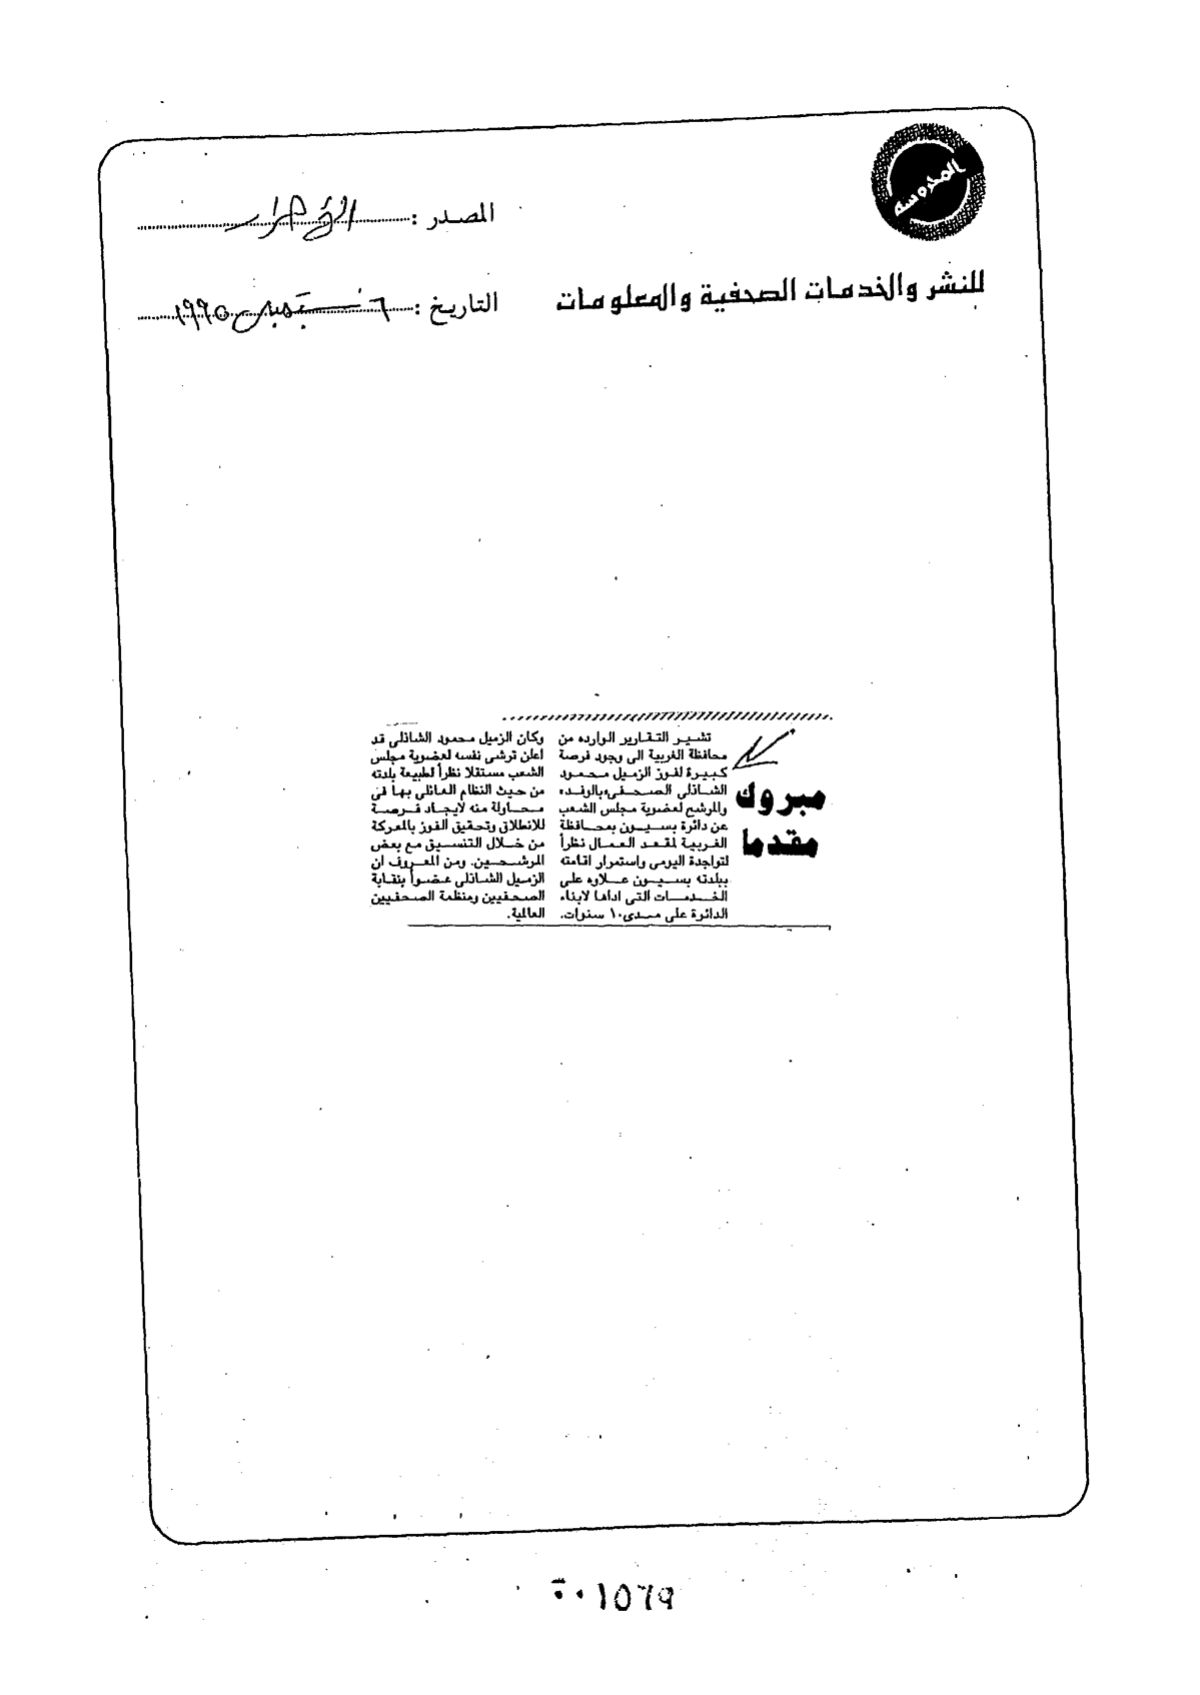 المحروسة
للنشر والخدمات الصحفية والمعلومات
المصدر : الأحرار
التاريخ : ٦ سبتمبر ١٩٩٥
مبروك
مقدما
تشير التقارير الوارده من
محافظة الغربية الى وجود فرصة
كبيرة لفوز الزميل محمود
الشاذلى الصحفى بالوفد
والمرشح لعضوية مجلس الشعب
عن دائرة بسيون بمحافظة
الغربية لمقعد العمال نظرأ
لتواجدة اليومى واستمرار اقامته
ببلدته بسيون علاوه على
الخدمات التى اداها لابناء
الدائرة على مدى ١٠ سنوات.
وكان الزميل محمود الشاذلى قد
اعلن ترشى نفسه لعضوية مجلس
الشعب مستقلا نظرأ لطبيعة بلدته
من حيث النظام العائلى بها فى
محاولة منه لايجاد فرصة
للانطلاق وتحقيق الفوز بالمعركة
من خلال التنسيق مع بعض
المرشحين. ومن المعروف ان
الزميل الشاذلى عضوأ بنقابة
الصحفيين ومنظمة الصحفيين
العالمية.